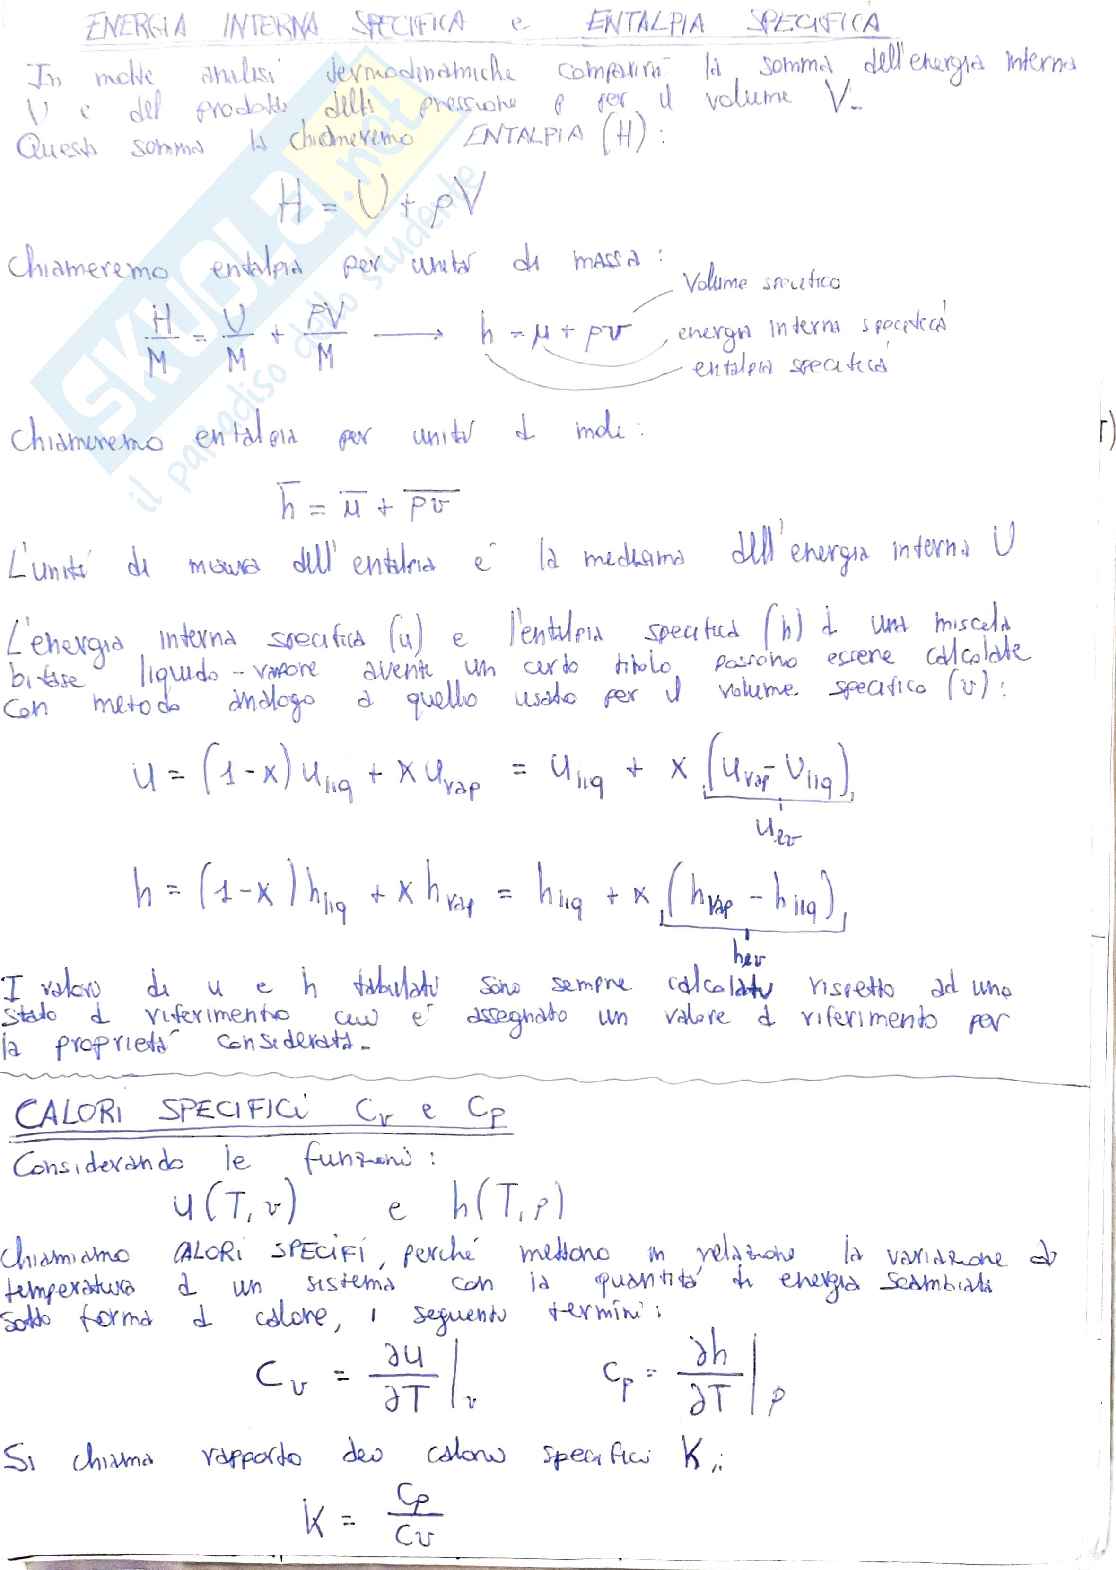 ENERGIA INTERNA SPECIFICA e ENTALPIA SPECIFICA
In molte analisi termodinamiche comparirà la somma dell'energia interna
U e del prodotto della pressione p per il volume V.
Questa somma la chiameremo ENTALPIA (H):
H = U + pV
Chiameremo entalpia per unità di massa:
Volume specifico
H/M = U/M + PV/M → h = u + pv
energia interna specifica
entalpia specifica
Chiameremo entalpia per unità di mole:
h̅ = u̅ + p̅v̅
L'unità di misura dell'entalpia è la medesima dell'energia interna U
L'energia interna specifica (u) e l'entalpia specifica (h) di una miscela
bifase liquido-vapore avente un certo titolo, possono essere calcolate
con metodo analogo a quello usato per il volume specifico (v):
u = (1-x) u liq + x u vap = u liq + x (u vap - u liq)
u lv
h = (1-x) h liq + x h vap = h liq + x (h vap - h liq)
h lv
I valori di u e h tabulati sono sempre calcolati rispetto ad uno
stato di riferimento cui è assegnato un valore di riferimento per
la proprietà considerata.
CALORI SPECIFICI Cv e Cp
Considerando le funzioni:
u(T,v) e h(T,p)
Chiamiamo CALORI SPECIFI, perché mettono in relazione la variazione di
temperatura di un sistema con la quantità di energia scambiata
sotto forma di calore, i seguenti termini:
Cv = ∂u/∂T |v Cp = ∂h/∂T |p
Si chiama rapporto dei calori specifici K,:
K = Cp/Cv
SKUOLA.net
il paradiso dello studente